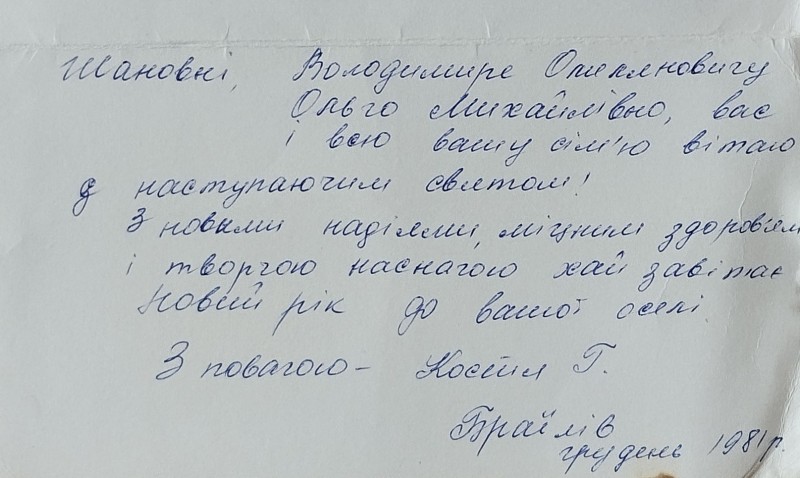 Шановні, Володимире Омеляновичу
Ольго Михайлівно, вас
і всю вашу сім'ю вітаю
з наступаючим святом!
З новими надіями, міцним здоров'ям
і творчою наснагою хай завітає
Новий рік до вашої оселі.
З повагою – Костюл Г.
Браїлів
грудень 1981 р.